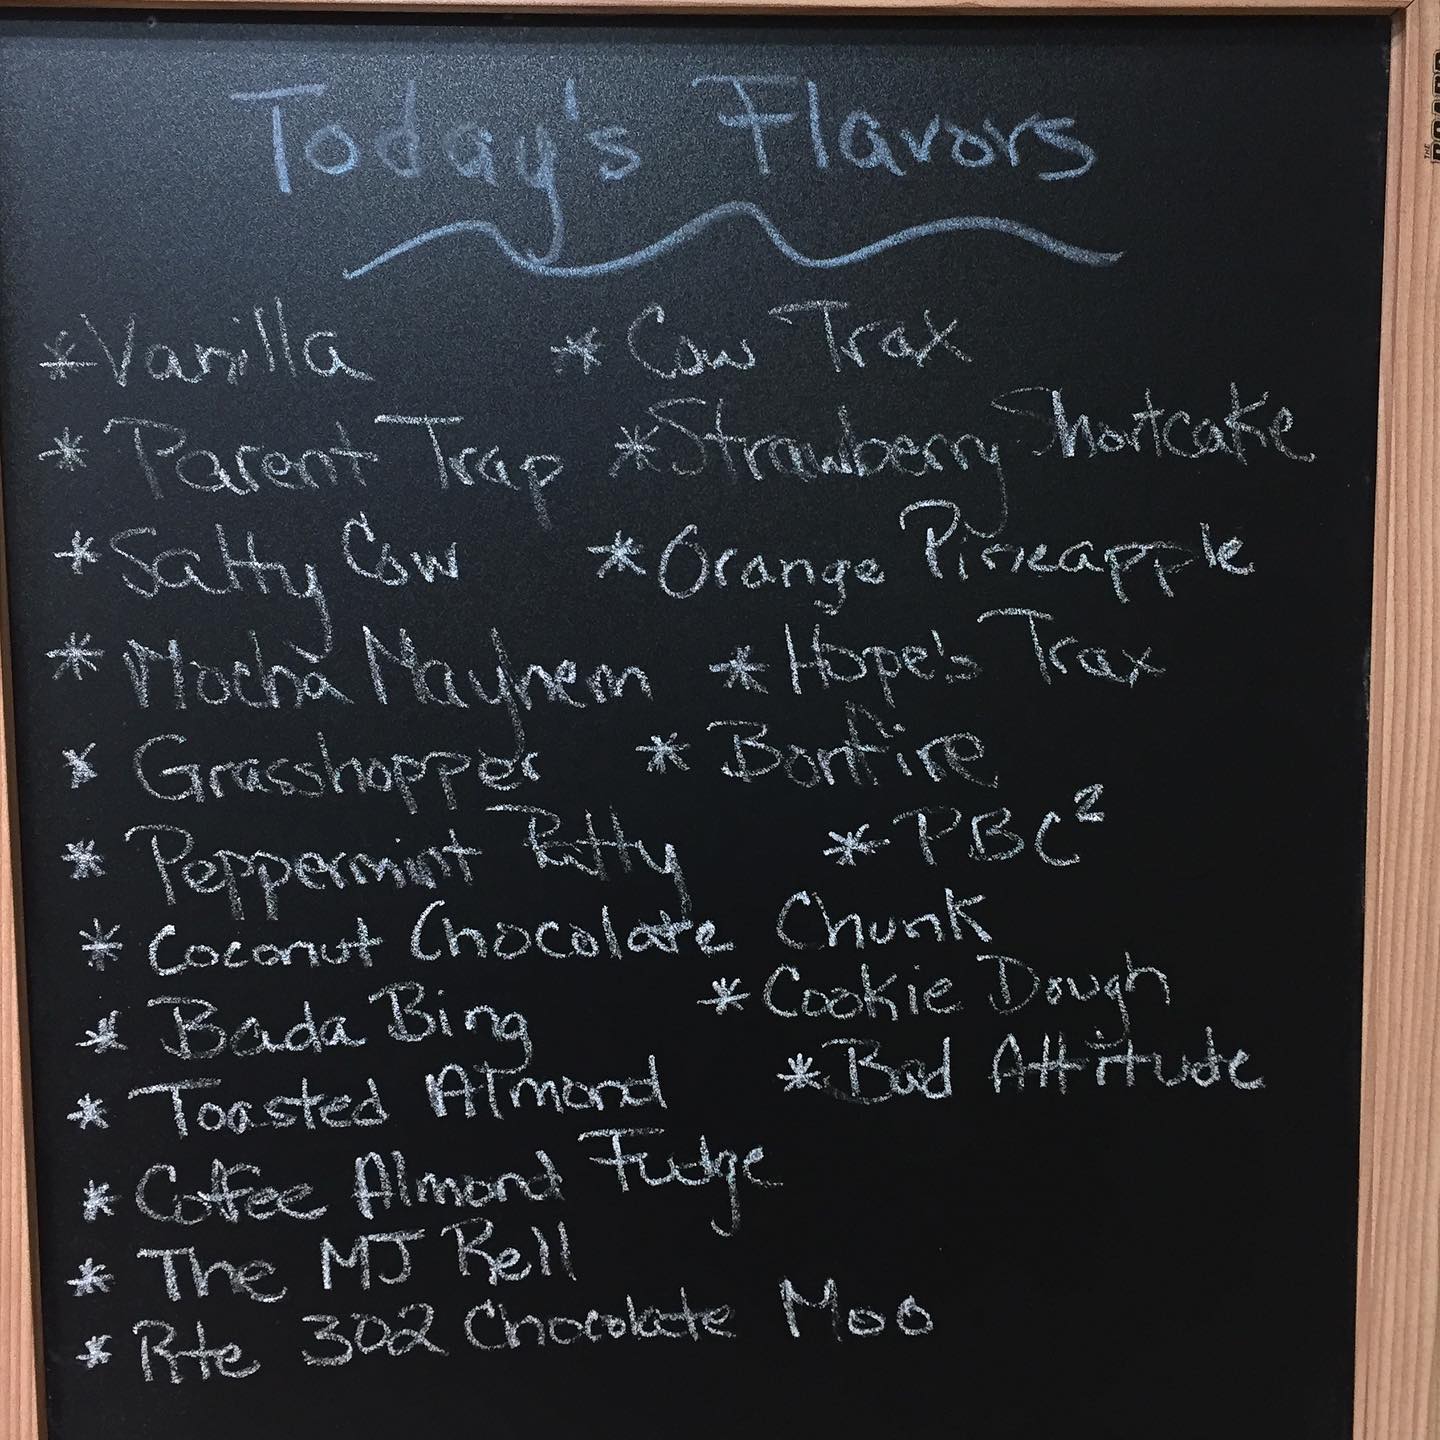 Today's Flavors
*Vanilla
*Cow Trax
*Parent Trap
*Strawberry Shortcake
*Salty Cow
*Orange Pineapple
*Mocha Mayhem
*Hope's Trax
*Grasshopper
*Bonfire
*Peppermint Patty
*PBC²
*Coconut Chocolate Chunk
*Bada Bing
*Cookie Dough
*Toasted Almond
*Bad Attitude
*Coffee Almond Fudge
*The MJ Rell
*Rte 302 Chocolate Moo
THE BOARD